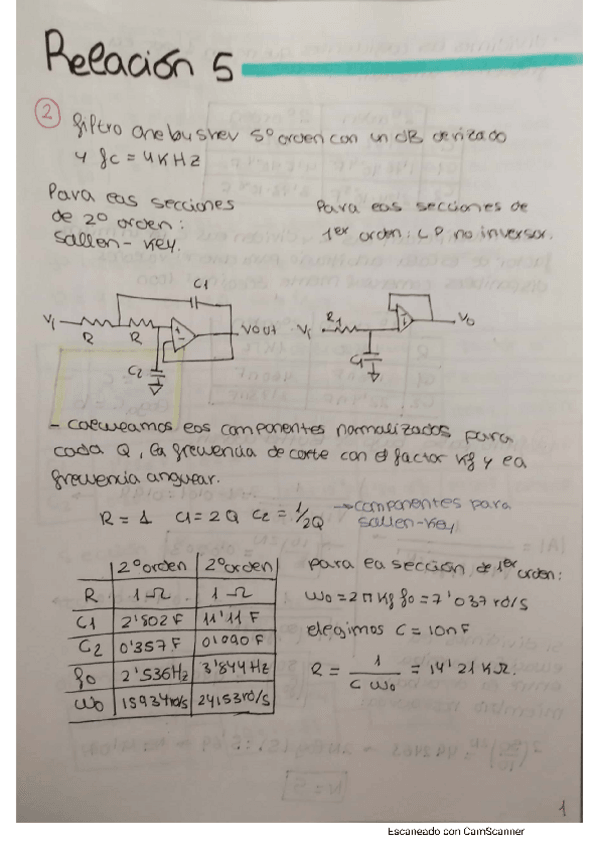 Relación 5
2
filtro Chebushev 5º orden con un dB de rizado
y fc = 4KHz
Para las secciones
de 2º orden:
Sallen-Key.
Para las secciones de
1er orden: LP no inversor.
C1
Vi
R
R
+
-
Vout
C2
Vi
R1
C1
Vo
- Calculamos los componentes normalizados para
cada Q, la frecuencia de corte con el factor Kf y la
frecuencia angular.
R = 1 C1 = 2Q C2 = 1/2Q → componentes para
sallen-key
2º orden 2º orden
R 1Ω 1Ω
C1 2'802 F 11'11 F
C2 0'357 F 0'090 F
fo 2'536Hz 3'844Hz
ωo 15934rd/s 24153rd/s
para la sección de 1er orden:
ωo = 2π Kf fo = 7'037rd/s
elegimos C = 10nF
R = 1 / C ωo = 14'21 KΩ.
1
Escaneado con CamScanner